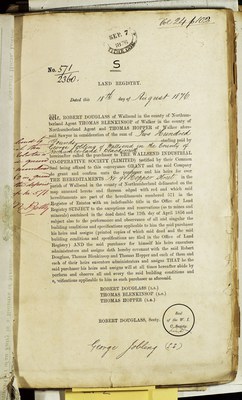 Vol. 24 p 103
SEP. 7
S
No. 571/2360.
LAND REGISTRY.
Dated this 11th day of August 1876
WE, ROBERT DOUGLASS of Wallsend in the county of Northum-
berland Agent THOMAS BLENKINSOP of Walker in the county of
Northumberland Agent and THOMAS HOPPER of Walker afore-
said Sawyer in consideration of the sum of Two Hundred
Pounds paid by
George Jobling of Wallsend in the County of
Northumberland
hereinafter called the purchaser to THE WALLSEND INDUSTRIAL
CO-OPERATIVE SOCIETY (LIMITED) testified by their Common
Seal being affixed to this conveyance GRANT and the said Company
do grant and confirm unto the purchaser and his heirs for ever
THE HEREDITAMENTS
situate at Wallsend in the county of Northumberland delineated on the
map annexed hereto and thereon edged with red and which said
hereditaments are part of the hereditaments numbered 571 in the
Register of Estates with an indefeasible title in the Office of Land
Registry SUBJECT to the exceptions and reservations (as to mines and
minerals) contained in the deed dated the 12th day of April 1858 and
subject also to the performance and observance of all and singular the
building conditions and specifications applicable to the said purchaser
his heirs and assigns (printed copies of which said deed and the said
building conditions and specifications are filed in the Office of Land
Registry) AND the said purchaser for himself his heirs executors
administrators and assigns doth hereby covenant with the said Robert
Douglass, Thomas Blenkinsop and Thomas Hopper and each of them and
each of their heirs executors administrators and assigns THAT he the
said purchaser his heirs and assigns will at all times hereafter abide by
perform and observe all and every the said building conditions and
specifications applicable to him as such purchaser as aforesaid.
ROBERT DOUGLASS (L.S.)
THOMAS BLENKINSOP (L.S.)
THOMAS HOPPER (L.S.)
ROBERT DOUGLASS, Secty.
Seal
of the W. I.
George Jobling (LS)